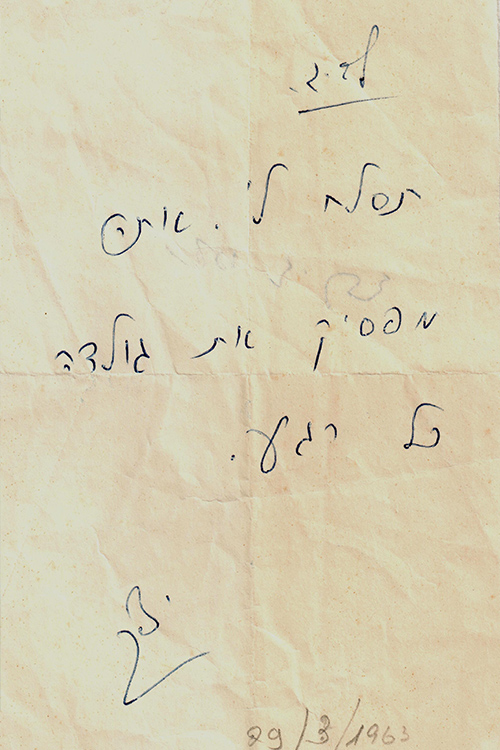 לד.ג.
תסלח לי. אתה
מפסיק את גולדה
כל רגע.
29/3/1963